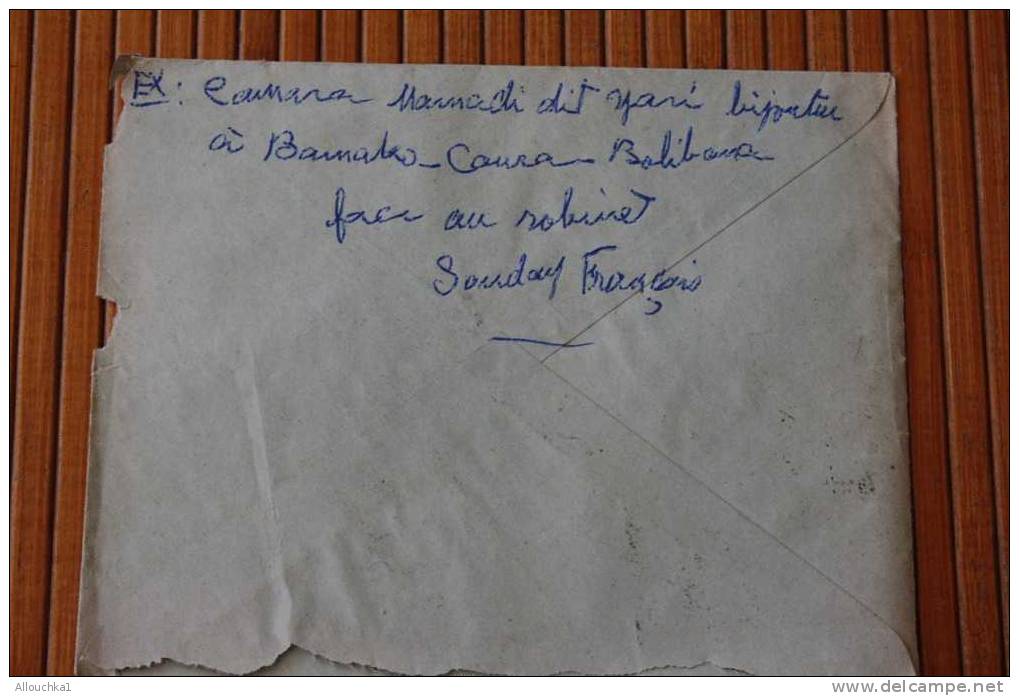 EX: Camara Mamadi dit Yari bijoutier
à Bamako-Coura-Bolibana
face au robinet
Soudan Français
Allouchka1
www.delcampe.net